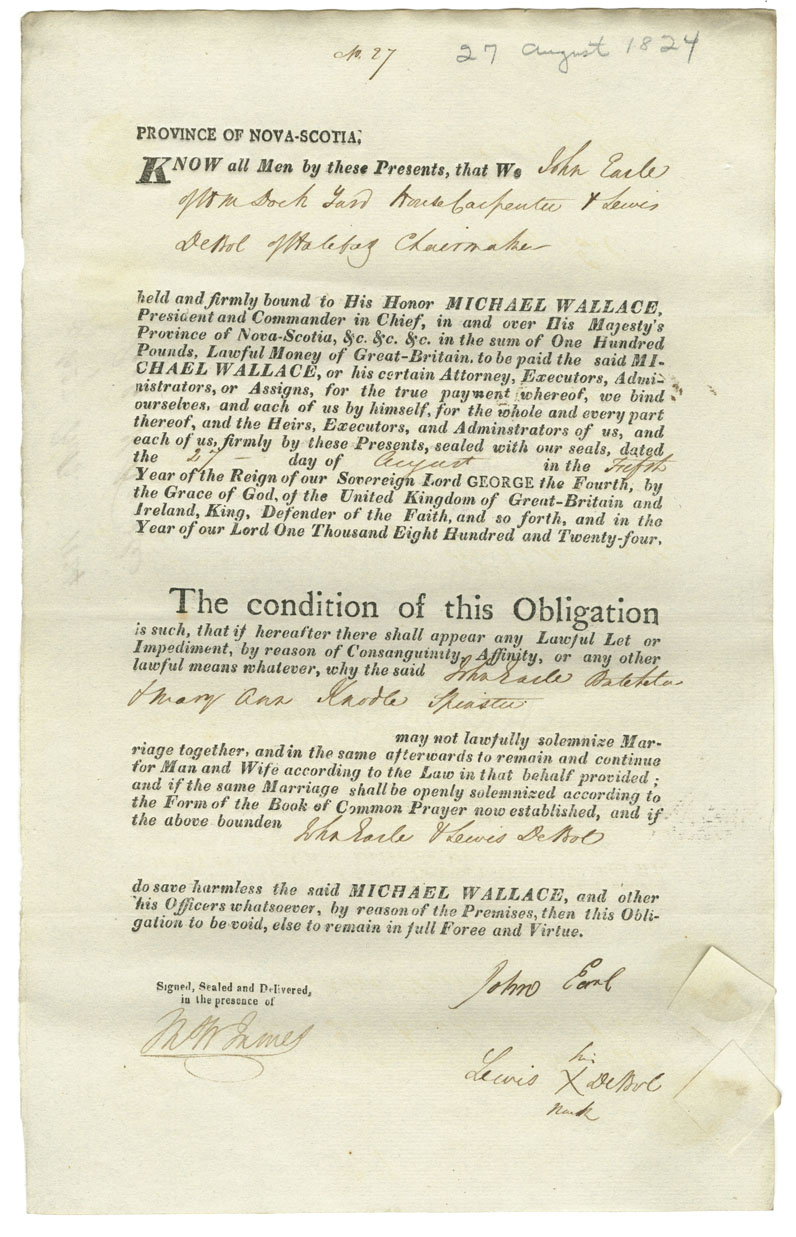 No. 27
27 August 1824
PROVINCE OF NOVA-SCOTIA,
KNOW all Men by these Presents, that We John Earle
of HM Dock Yard House Carpenter & Lewis
DeBol of Halifax Chairmaker
held and firmly bound to His Honor MICHAEL WALLACE,
President and Commander in Chief, in and over His Majesty's
Province of Nova-Scotia, &c. &c. &c. in the sum of One Hundred
Pounds, Lawful Money of Great-Britain, to be paid the said MI-
CHAEL WALLACE, or his certain Attorney, Executors, Admi-
nistrators, or Assigns, for the true payment whereof, we bind
ourselves, and each of us by himself, for the whole and every part
thereof, and the Heirs, Executors, and Adminstrators of us, and
each of us, firmly by these Presents, sealed with our seals, dated
the 27 day of August in the Fifth
Year of the Reign of our Sovereign Lord GEORGE the Fourth, by
the Grace of God, of the United Kingdom of Great-Britain and
Ireland, King, Defender of the Faith, and so forth, and in the
Year of our Lord One Thousand Eight Hundred and Twenty-four.
The condition of this Obligation
is such, that if hereafter there shall appear any Lawful Let or
Impediment, by reason of Consanguinity, Affinity, or any other
lawful means whatever, why the said John Earle Batchelor
& Mary Ann Knodle Spinster
may not lawfully solemnize Mar-
riage together, and in the same afterwards to remain and continue
for Man and Wife according to the Law in that behalf provided;
and if the same Marriage shall be openly solemnized according to
the Form of the Book of Common Prayer now established, and if
the above bounden John Earle & Lewis DeBol
do save harmless the said MICHAEL WALLACE, and other
his Officers whatsoever, by reason of the Premises, then this Obli-
gation to be void, else to remain in full Foree and Virtue.
Signed, Sealed and Delivered,
in the presence of
John Earl
James
his
Lewis X DeBol
mark